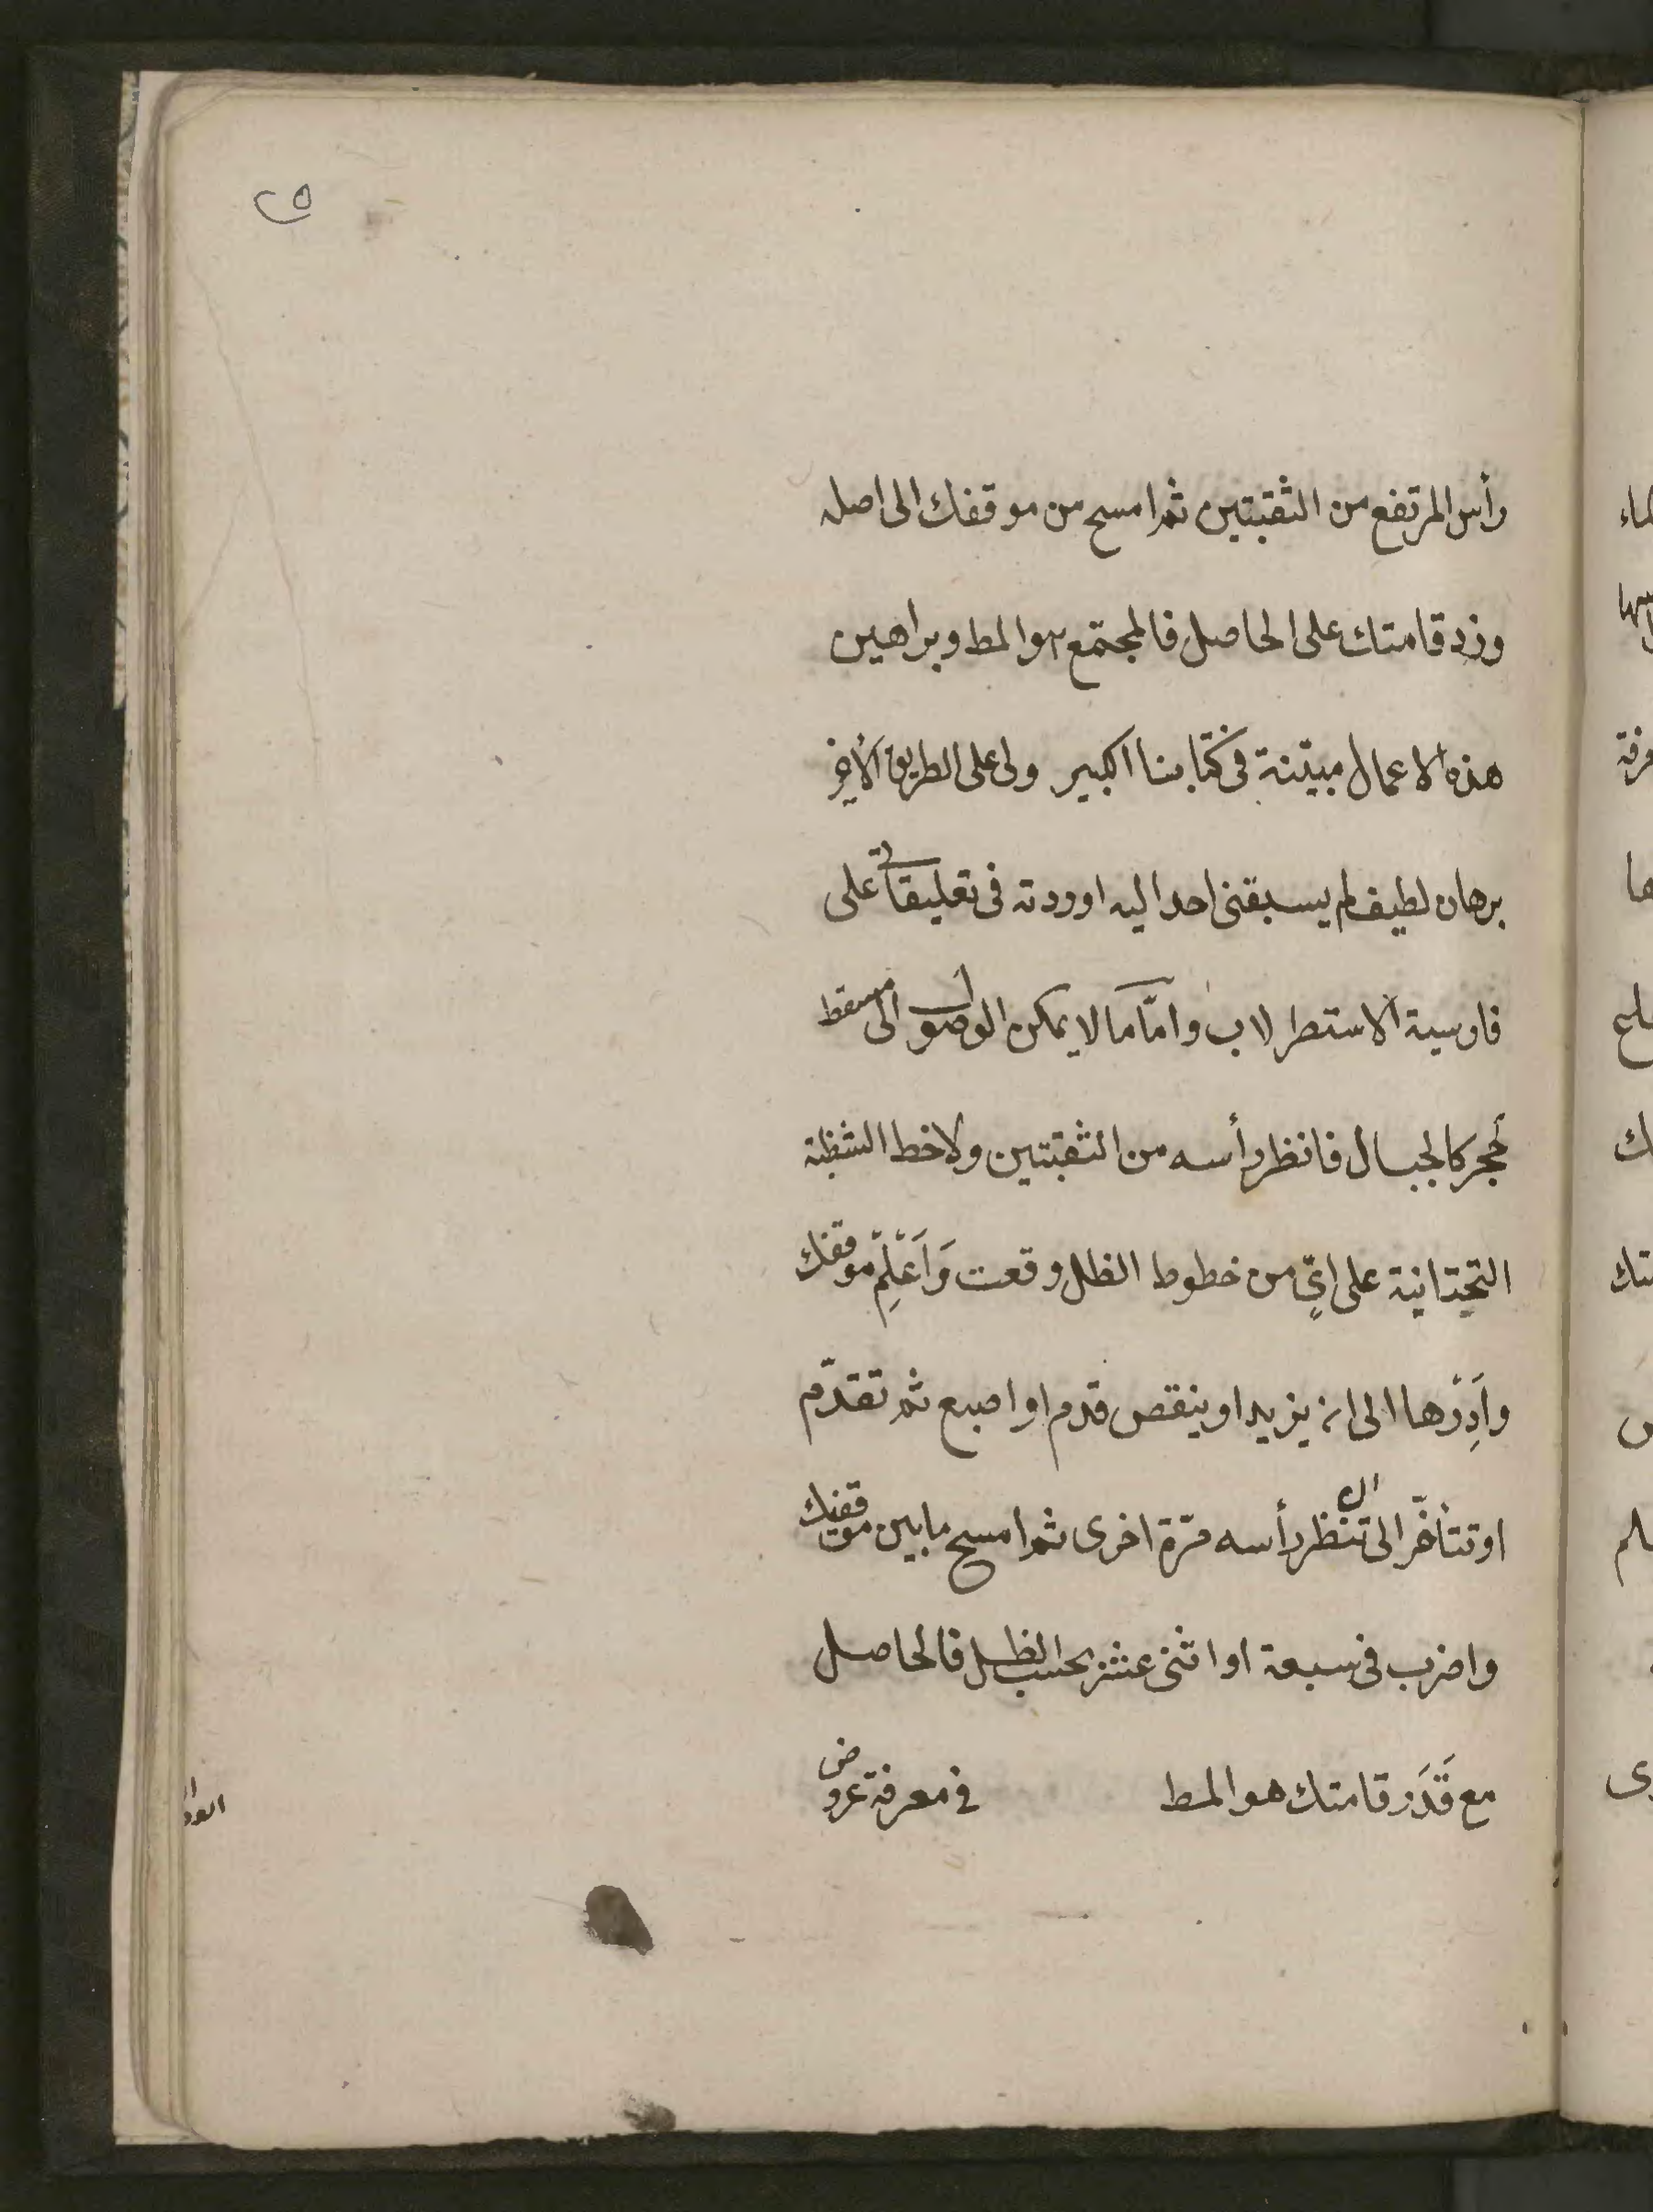 ٢٥
رأس المرتفع من الثقبتين ثم امسح من موقفك الى اصله
وزد قامتك على الحاصل فالمجتمع هو المط وبراهين
هذه الاعمال مبيّنة فى كتابنا الكبير ولى على الطريق الأخير
برهان لطيف لم يسبقنى احد اليه اوردته فى تعليقاتى على
فارسية الاسترلاب وامّا ما لا يمكن الوصول الى مسقط
حجر كالجبال فانظر رأسه من الثقبتين ولاحظ الشظية
التحتانية على اىّ من خطوط الظل وقعت وَاَعْلِمْ موقفك
واَدِرْها الى ان يزيد او ينقص قدم او اصبع ثم تقدّم
او تتأخّر الى ان تنظر رأسه مرّة اخرى ثم امسح ما بين موقفيك
واضرب فى سبعة او اثنى عشر بحسب الظل فالحاصل
مع قَدَر قامتك هو المط فى معرفة عروض